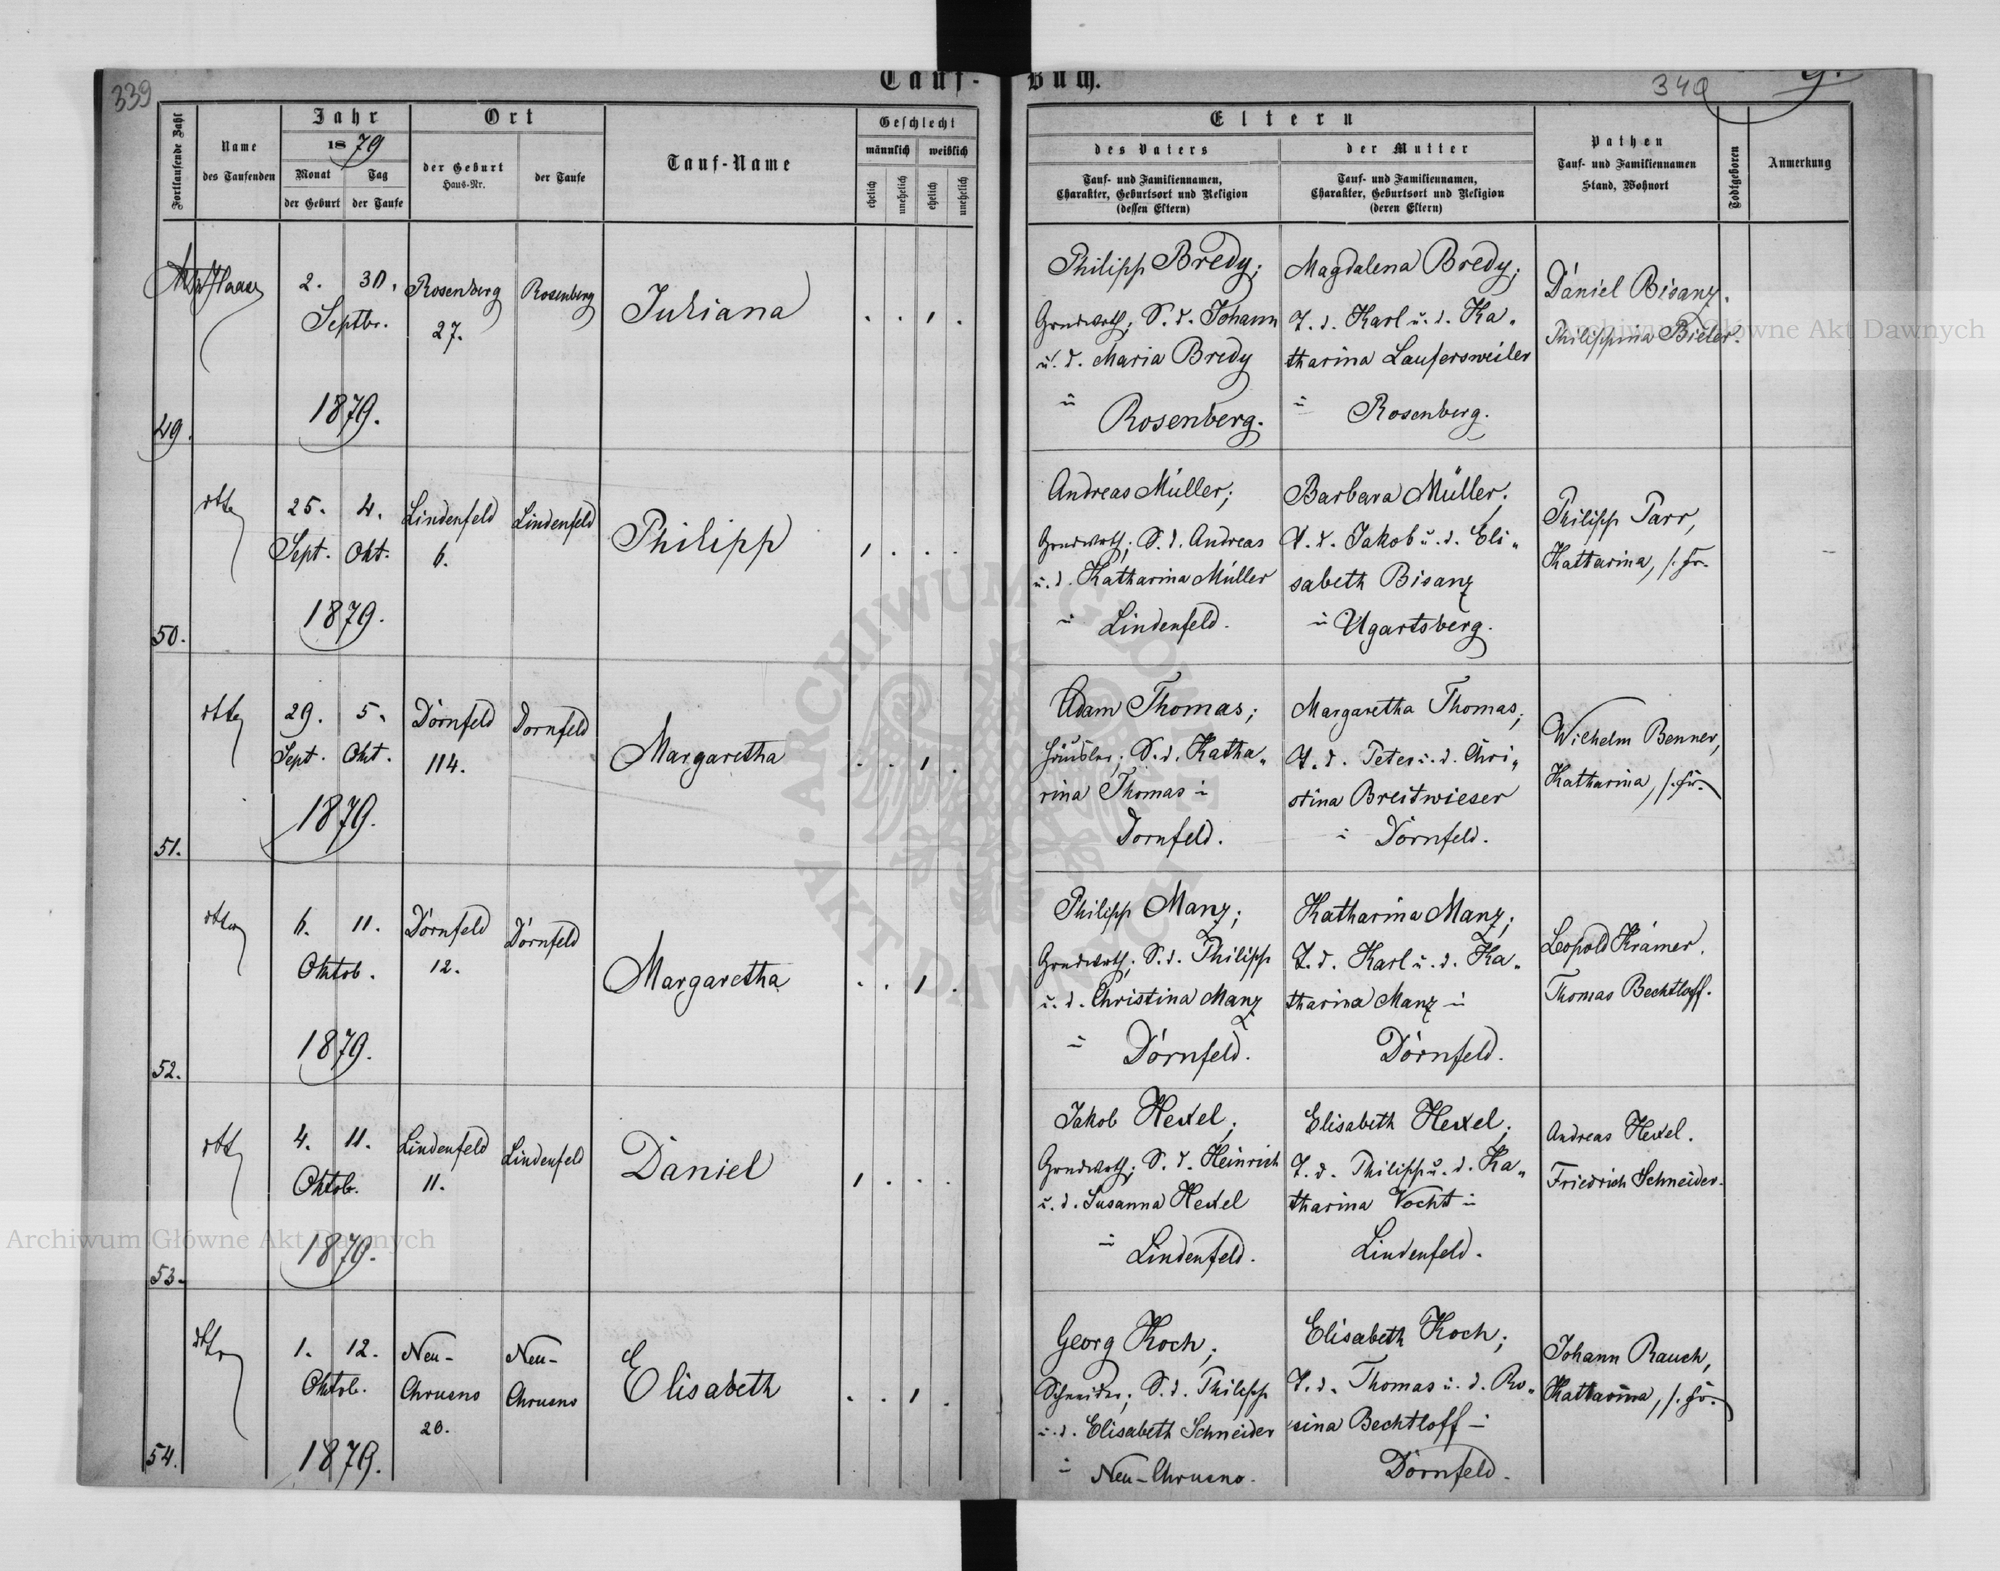 339
Tauf-Buch.
340
9.
Fortlaufende Zahl
Name
des Taufenden
Jahr
1879
Monat
Tag
der Geburt
der Taufe
Ort
der Geburt
Haus-Nr.
der Taufe
Tauf-Name
Geschlecht
männlich
weiblich
ehelich
unehelich
ehelich
unehelich
Eltern
des Vaters
Tauf- und Familiennamen,
Charakter, Geburtsort und Religion
(dessen Eltern)
der Mutter
Tauf- und Familiennamen,
Charakter, Geburtsort und Religion
(deren Eltern)
Pathen
Tauf- und Familiennamen
Stand, Wohnort
Todtgeboren
Anmerkung
49.
Haase
2. 30.
Septbr.
1879.
Rosenberg
27.
Rosenberg
Juliana
Philipp Bredy;
Grundwrth; S. d. Johann
u. d. Maria Bredy
Rosenberg.
Magdalena Bredy;
T. d. Karl u. d. Ka-
tharina Laufersweiler
Rosenberg.
Daniel Bisanz.
Philippina Bieler.
50.
dtto
25. 4.
Sept. Okt.
1879.
Lindenfeld
6.
Lindenfeld
Philipp
Andreas Müller;
Grundwrth; S. d. Andreas
u. d. Katharina Müller
Lindenfeld.
Barbara Müller;
T. d. Jakob u. d. Eli-
sabeth Bisanz
Ugartsberg.
Philipp Parr,
Katharina,
51.
dtto
29. 5.
Sept. Okt.
1879.
Dornfeld
114.
Dornfeld
Margaretha
Adam Thomas;
Häusler; S. d. Katha-
rina Thomas
Dornfeld.
Margaretha Thomas;
T. d. Peter u. d. Chri-
stina Breitwieser
Dornfeld.
Wilhelm Benner,
Katharina,
52.
dtto
6. 11.
Oktob.
1879.
Dornfeld
12.
Dornfeld
Margaretha
Philipp Manz;
Grundwrth; S. d. Philipp
u. d. Christina Manz
Dornfeld.
Katharina Manz;
T. d. Karl u. d. Ka-
tharina Manz
Dornfeld.
Leopold Krämer.
Thomas Bechtloff.
53.
dtto
4. 11.
Oktob.
1879.
Lindenfeld
11.
Lindenfeld
Daniel
Jakob Hexel;
Grundwrth; S. d. Heinrich
u. d. Susanna Hexel
Lindenfeld.
Elisabeth Hexel;
T. d. Philipp u. d. Ka-
tharina Vocht
Lindenfeld.
Andreas Hexel.
Friedrich Schneider.
54.
dtto
1. 12.
Oktob.
1879.
Neu-
Chrusno
20.
Neu-
Chrusno
Elisabeth
Georg Koch;
Schneider; S. d. Philipp
u. d. Elisabeth Schneider
Neu-Chrusno.
Elisabeth Koch;
T. d. Thomas u. d. Ro-
sina Bechtloff
Dornfeld.
Johann Rauch,
Katharina,
Archiwum Główne Akt Dawnych
Archiwum Główne Akt Dawnych
ARCHIWUM GŁÓWNE AKT DAWNYCH